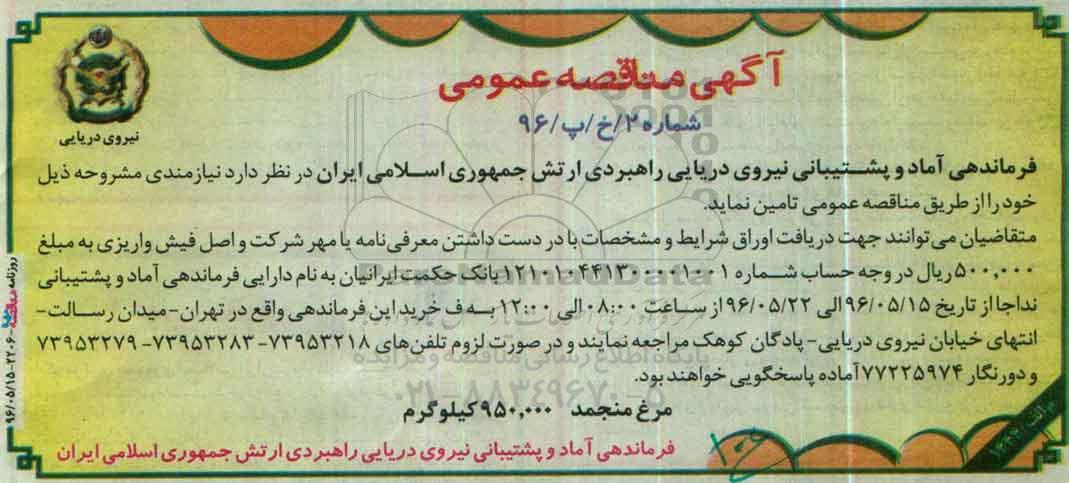 آگهی مناقصه عمومی
شماره ۲/خ/پ/۹۶
نیروی دریایی
فرماندهی آماد و پشتیبانی نیروی دریایی راهبردی ارتش جمهوری اسلامی ایران در نظر دارد نیازمندی مشروحه ذیل
خود را از طریق مناقصه عمومی تامین نماید.
متقاضیان می‌توانند جهت دریافت اوراق شرایط و مشخصات با در دست داشتن معرفی‌نامه با مهر شرکت و اصل فیش واریزی به مبلغ
۵۰۰,۰۰۰ ریال در وجه حساب شماره بانک حکمت ایرانیان به نام دارایی فرماندهی آماد و پشتیبانی
نداجا از تاریخ ۹۶/۰۵/۱۵ الی ۹۶/۰۵/۲۲ از ساعت ۰۸:۰۰ الی ۱۲:۰۰ به ف خرید این فرماندهی واقع در تهران-میدان رسالت-
انتهای خیابان نیروی دریایی-پادگان کوهک مراجعه نمایند و در صورت لزوم تلفن‌های ۷۳۹۵۳۲۱۸-۷۳۹۵۳۲۸۳-۷۳۹۵۳۲۷۹
و دورنگار ۷۷۲۲۵۹۷۴ آماده پاسخگویی خواهند بود.
مرغ منجمد ۹۵۰,۰۰۰ کیلوگرم
فرماندهی آماد و پشتیبانی نیروی دریایی راهبردی ارتش جمهوری اسلامی ایران
روزنامه مناقصه-۲۲۰۶-۹۶/۰۵/۱۵
HamadData
پایگاه اطلاع رسانی مناقصه و مزایده
۰۲۱-۸۸۳۴۹۶۷۰-۵